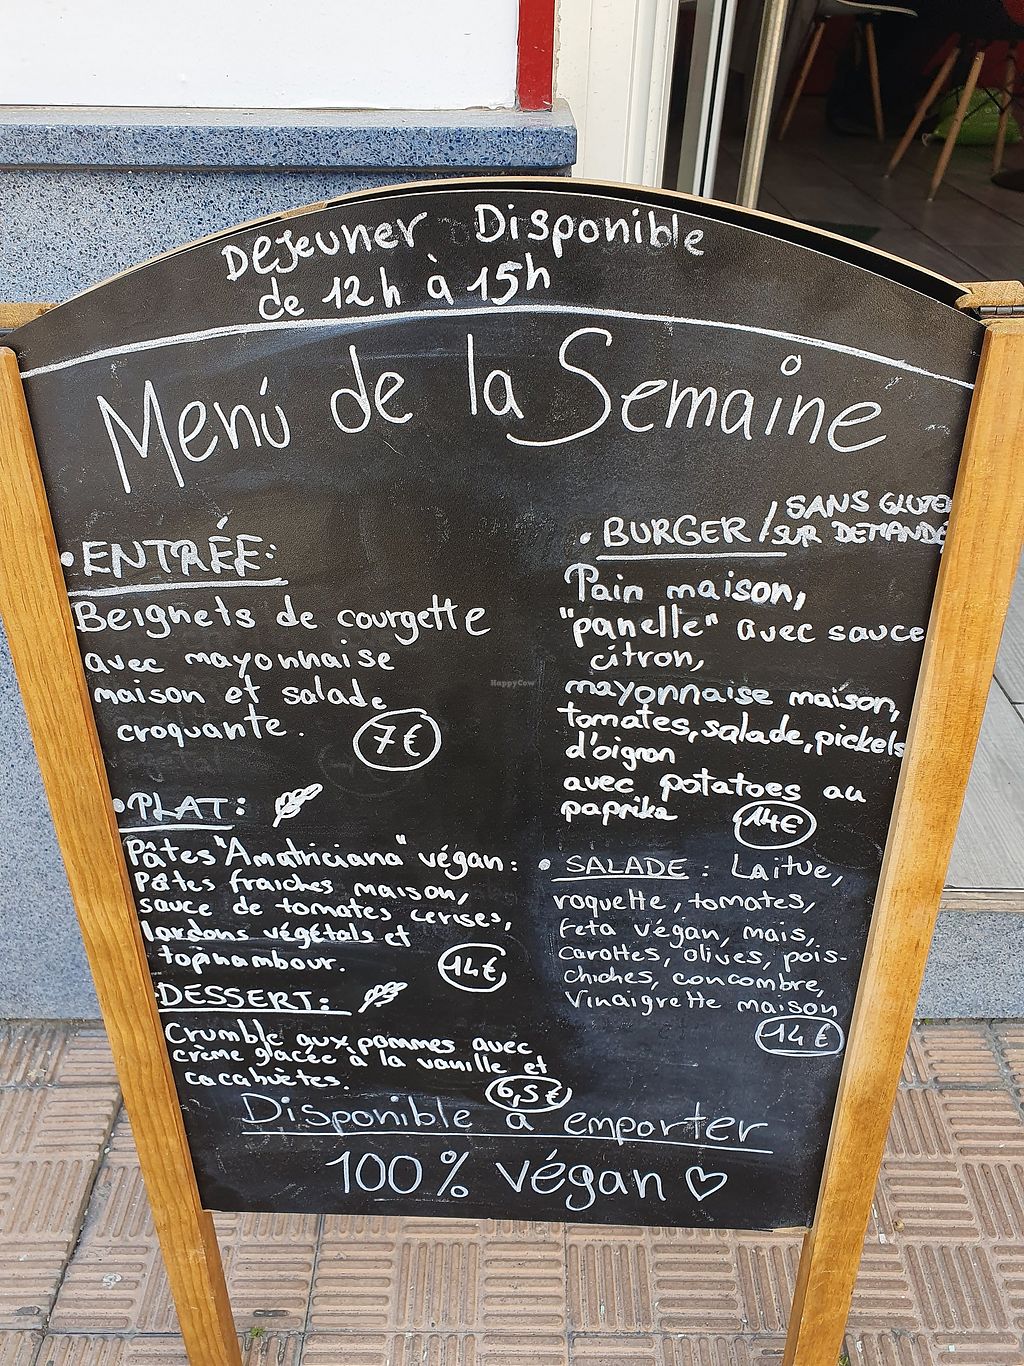 Déjeuner Disponible
de 12h à 15h
Menú de la Semaine
• ENTRÉE:
Beignets de courgette
avec mayonnaise
maison et salade
croquante.
7€
• PLAT:
Pâtes "Amatriciana" végan:
Pâtes fraiches maison,
sauce de tomates cerises,
lardons végétals et
topinambour.
14€
DESSERT:
Crumble aux pommes avec
crème glacée à la vanille et
cacahuètes.
6,5€
• BURGER / SANS GLUTEN
SUR DEMANDE
Pain maison,
"panelle" avec sauce
citron,
mayonnaise maison,
tomates, salade, pickels
d'oignon
avec potatoes au
paprika
14€
• SALADE: Laitue,
roquette, tomates,
feta végan, mais,
carottes, olives, pois-
chiches, concombre,
Vinaigrette maison
14€
Disponible a emporter
100% végan ♡
HappyCow